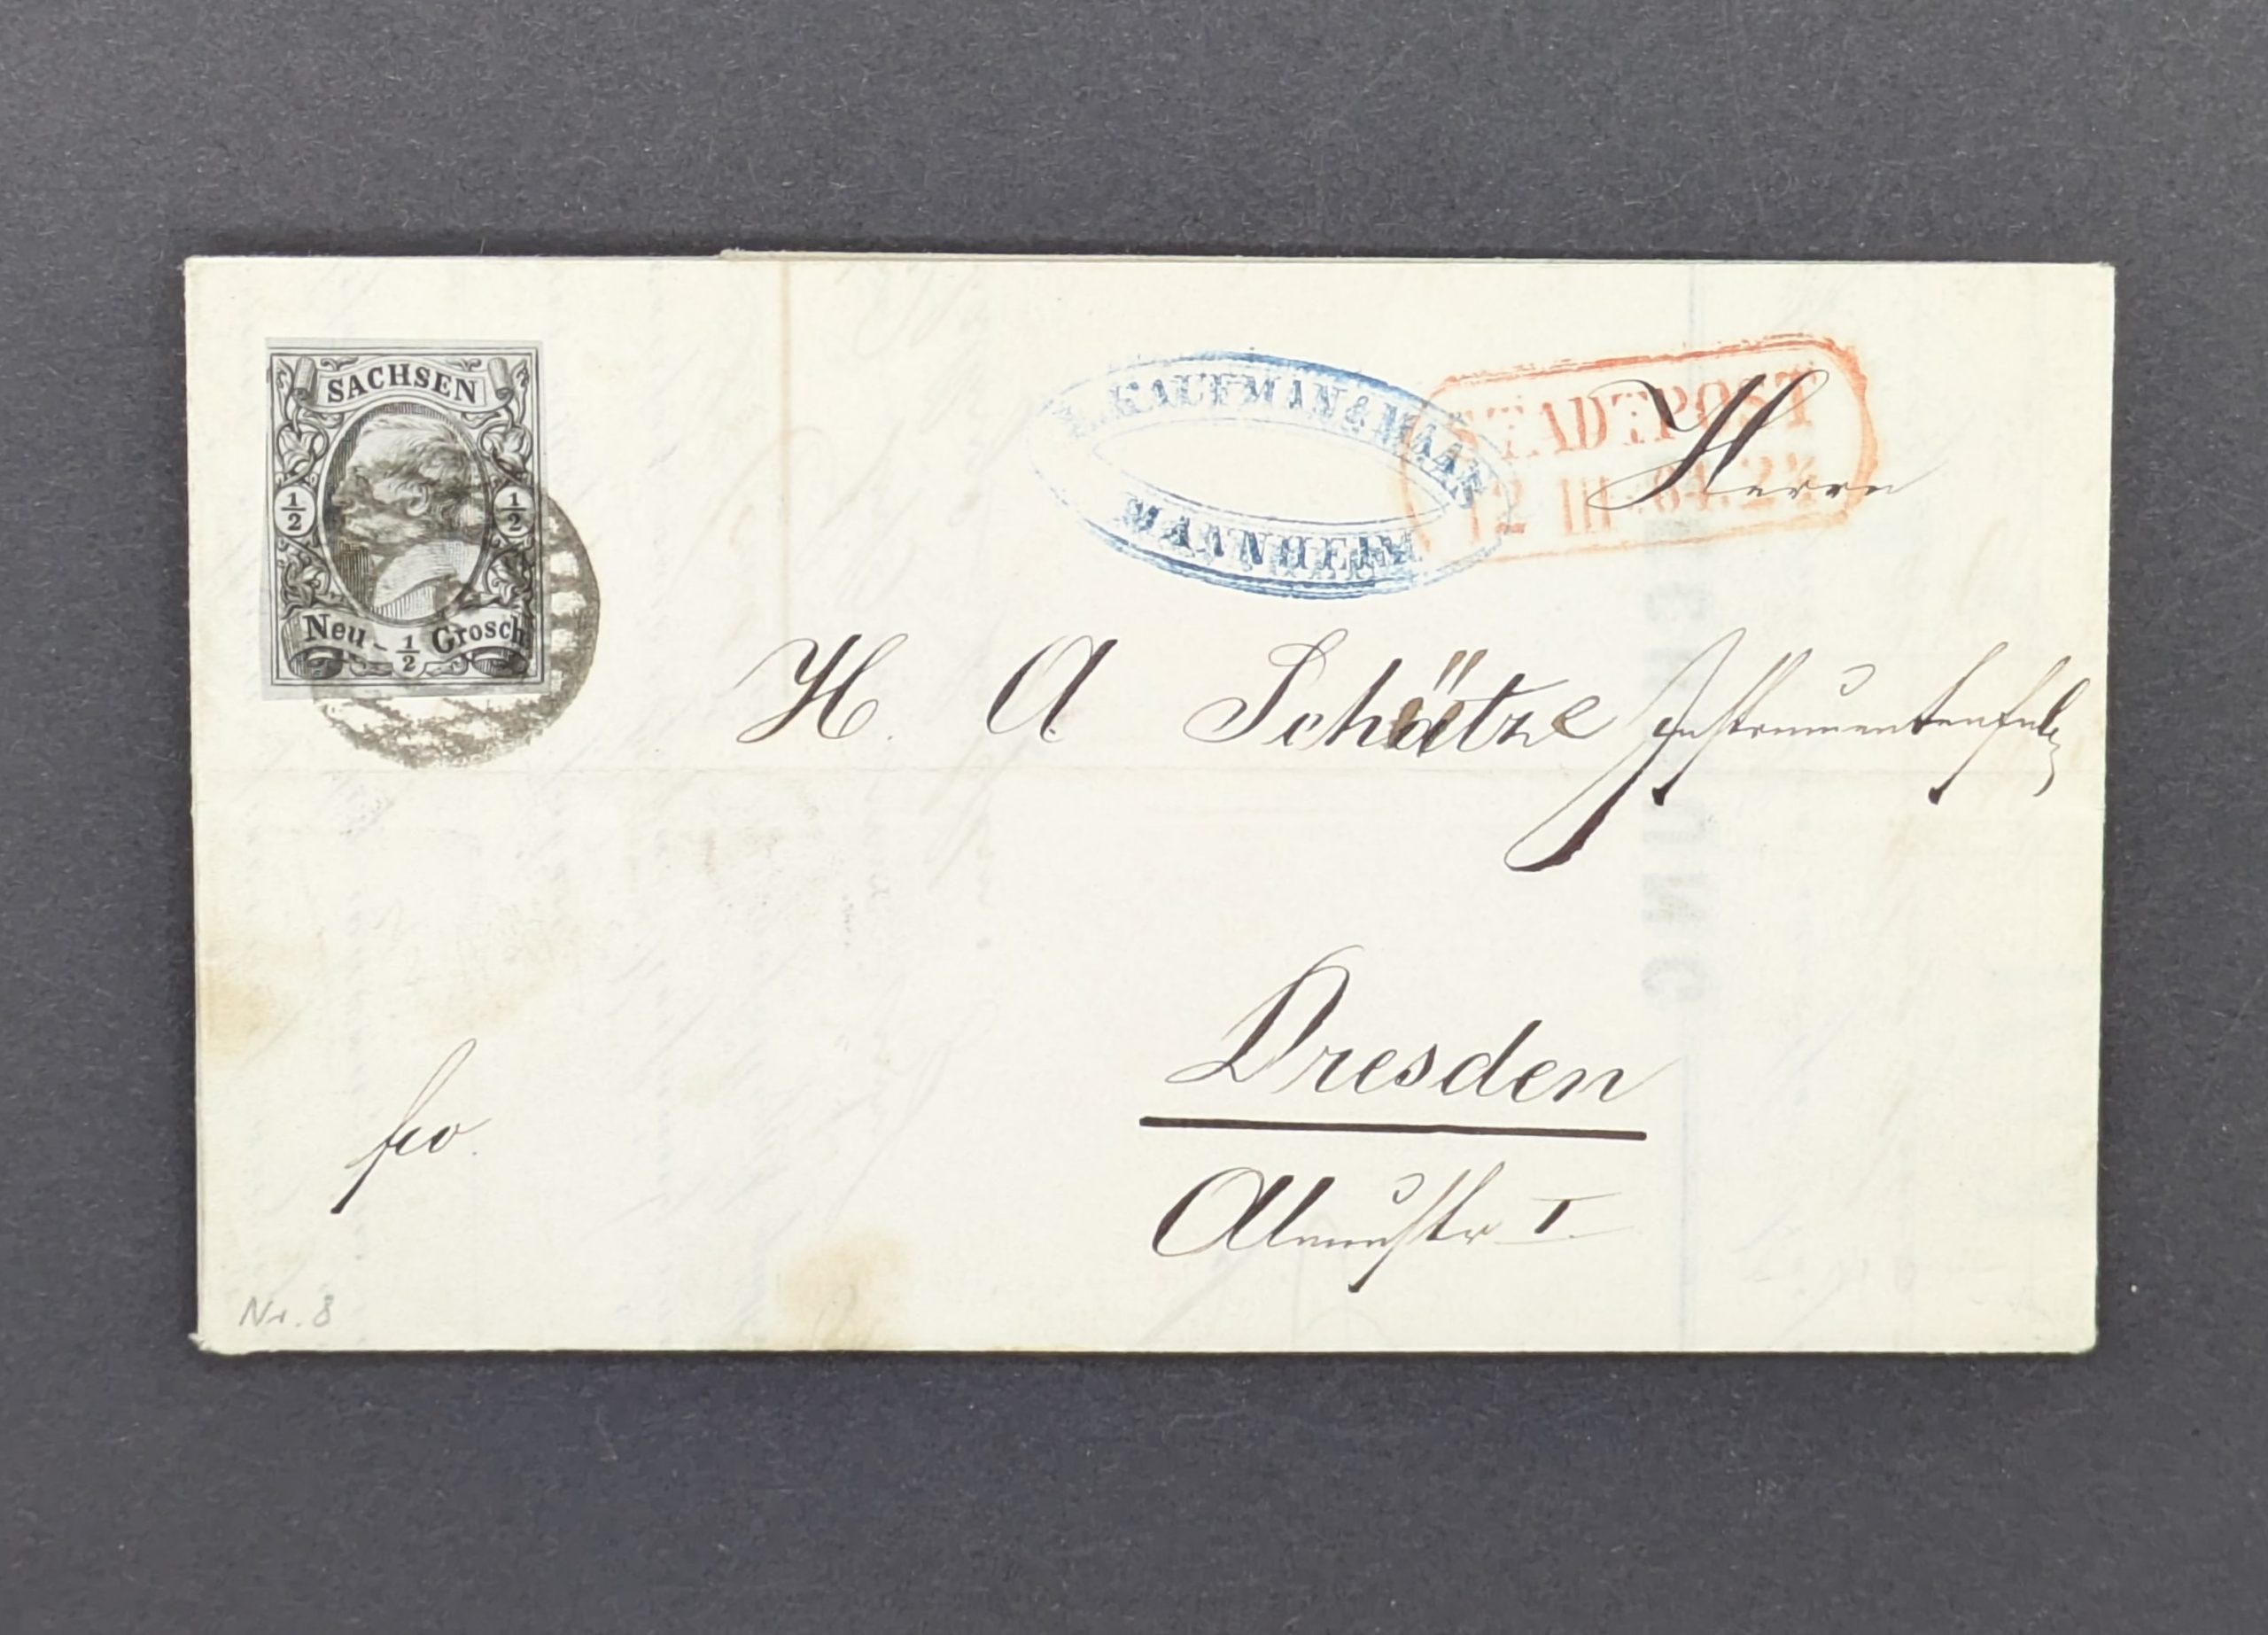 SACHSEN
1/2 1/2
Neu - 1/2 Grosch
KAUFMAN & MAAN
MANNHEIM
STADTPOST
12 III. 64. 2½
Herrn
H. A Schätze Instrumentenfab
Dresden
fco.
I.
Nr. 8